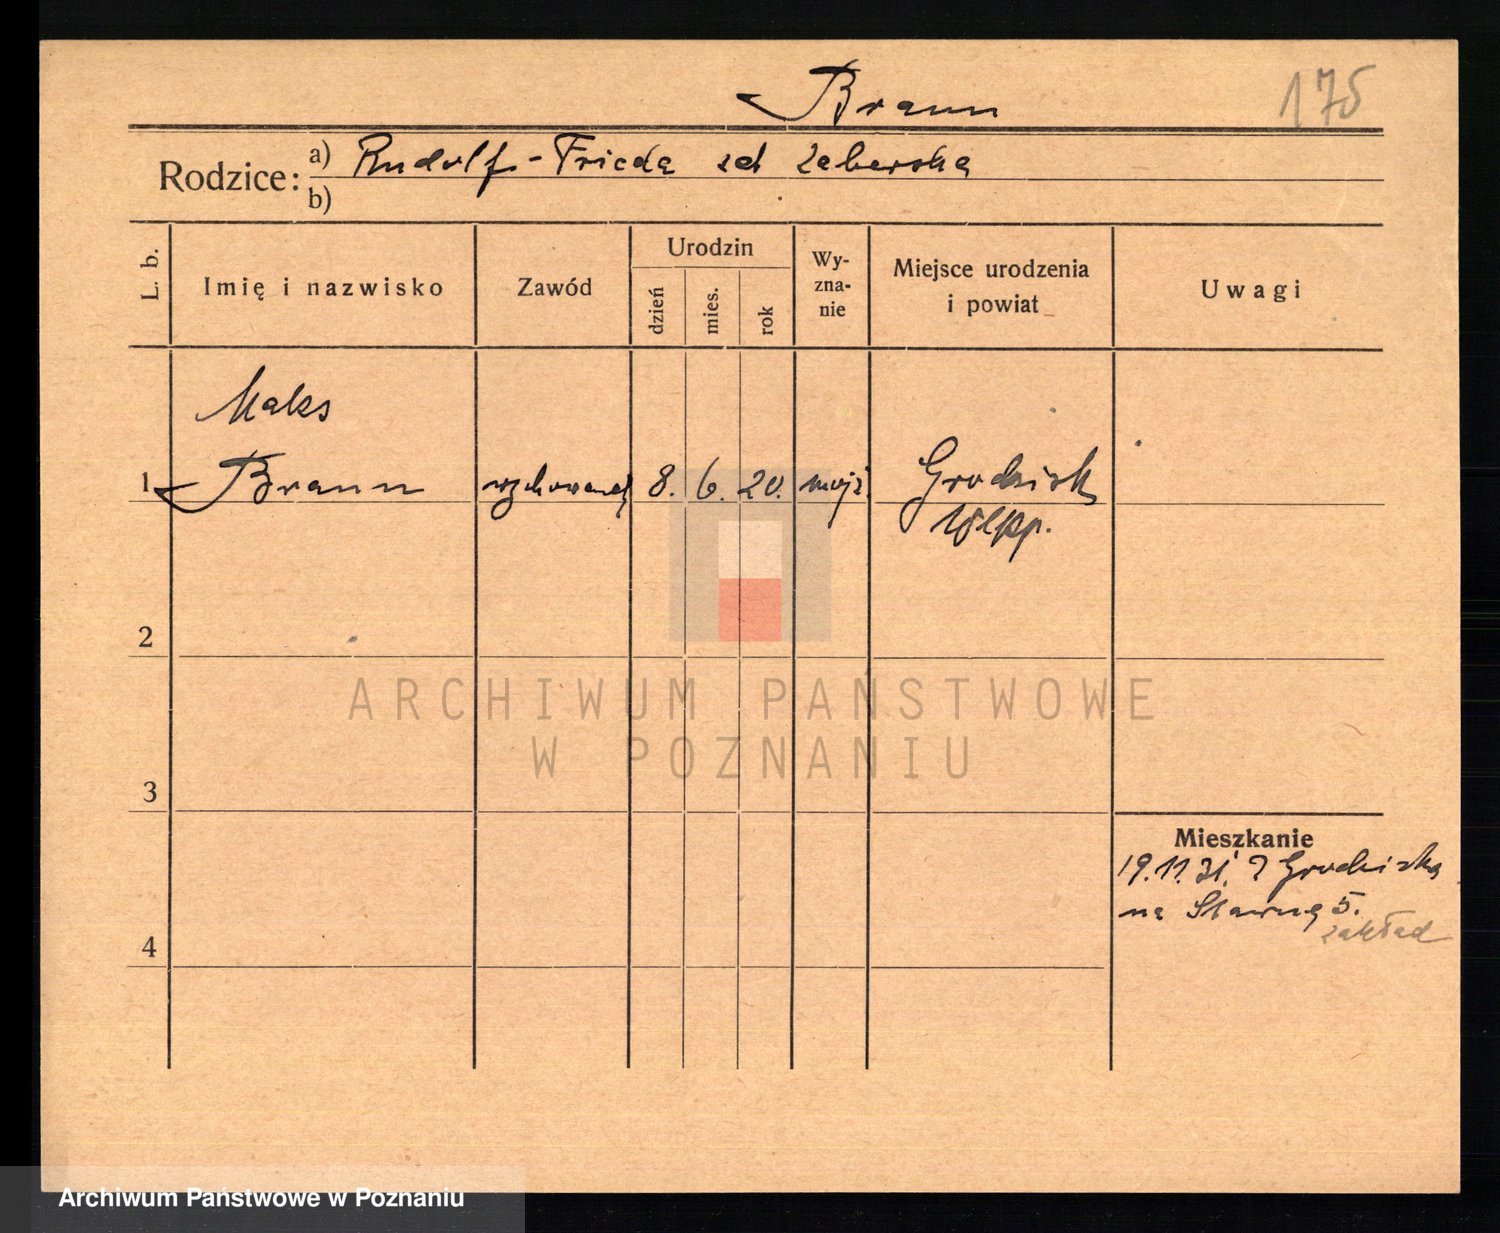 Braun
175
Rodzice: a) Rudolf-Frieda zd Zaberska
b)
L. b.
Imię i nazwisko
Zawód
Urodzin
dzień
mies.
rok
Wy-
zna-
nie
Miejsce urodzenia
i powiat
Uwagi
Maks
1 Braun
8. 6. 20. mojż.
Grodzisk
Wlkp.
2
3
4
Mieszkanie
19.11.31. z Grodziska
na Stawną 5.
zakład
ARCHIWUM PAŃSTWOWE
W POZNANIU
Archiwum Państwowe w Poznaniu